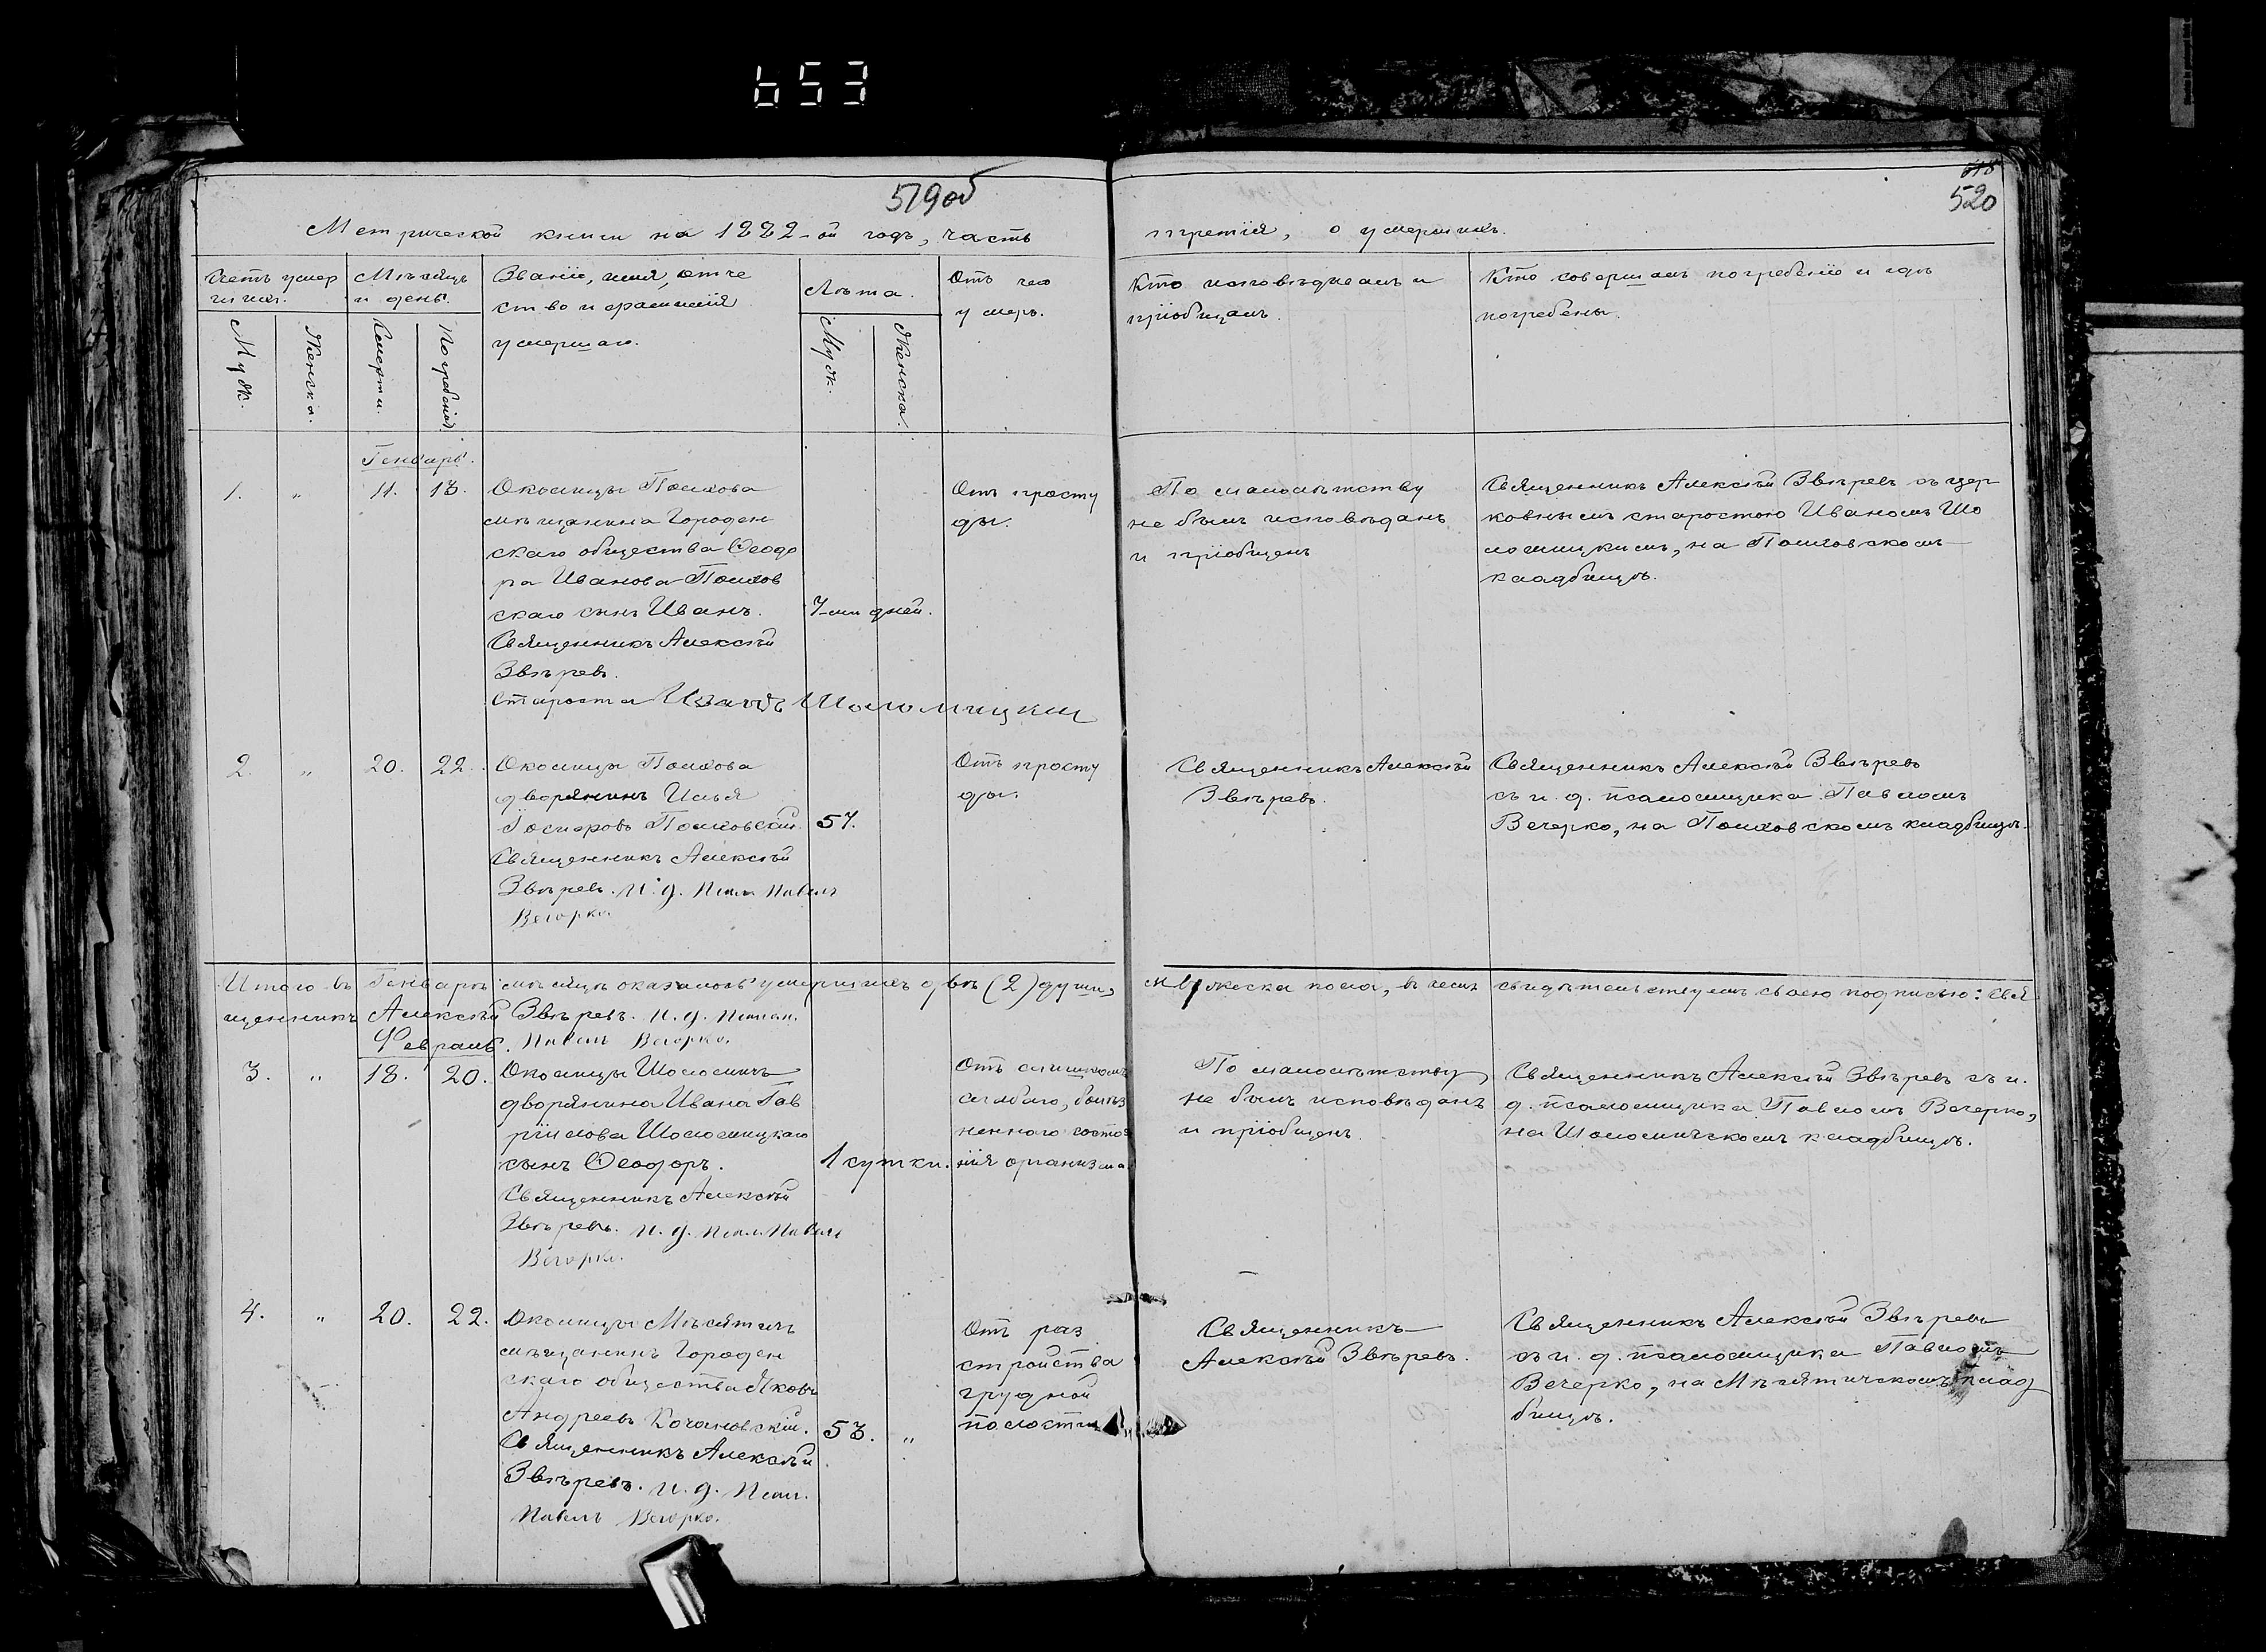 653
519об
618
520
Метрической книги на 1882-ой годъ, часть
третія, о умершихъ.
Счетъ умер
шихъ.
Мѣсяцъ
и день.
Званіе, имя, отче
ство и фамилія
умершаго.
Лѣта.
Отъ чего
умеръ.
Кто исповѣдывалъ и
пріобщалъ.
Кто совершалъ погребеніе и гдѣ
погребены.
Муж.
Женска.
Смерти.
Погребенія.
Муж.
Женска.
Генварь.
1. " 11. 13.
Околицы Полхова
мѣщанина Городен
скаго общества Ѳеодо
ра Иванова Полхов
скаго сынъ Иванъ.
7-ми дней.
Священникъ Алексѣй
Звѣревъ.
Староста Иванъ Шоломицкій
Отъ просту
ды.
По малолѣтству
не былъ исповѣданъ
и пріобщенъ
Священникъ Алексѣй Звѣревъ съ цер
ковнымъ старостою Иваномъ Шо
ломицкимъ, на Полховскомъ
кладбищѣ.
2. " 20. 22.
Околицы Полхова
дворянинъ Илья
Полховскій. 57.
Священникъ Алексѣй
Звѣревъ. И. д. Псал. Павелъ
Вечорко.
Отъ просту
ды.
Священникъ Алексѣй
Звѣревъ.
Священникъ Алексѣй Звѣревъ
съ и. д. псаломщика Павломъ
Вечерко, на Полховскомъ кладбищѣ.
Итого въ Генварѣ мѣсяцѣ оказалось умершихъ двѣ (2) души, мужеска пола, въ чемъ свидѣтельствуемъ своею подписью: Свя
щенникъ Алексѣй Звѣревъ. И. д. Псалом.
Павелъ Вечорко.
Февраль.
3. " 18. 20.
Околицы Шоломичъ
дворянина Ивана Гав
ріилова Шоломицкаго
сынъ Ѳеодоръ.
1 сутки.
Священникъ Алексѣй
Звѣревъ. И. д. Псал. Павелъ
Вечорко.
Отъ слишкомъ
слабаго, болѣз
неннаго состоя
нія организма
По малолѣтству
не былъ исповѣданъ
и пріобщенъ.
Священникъ Алексѣй Звѣревъ съ и.
д. псаломщика Павломъ Вечерко,
на Шоломичскомъ кладбищѣ.
4. " 20. 22.
Околицы Мѣсятичъ
мѣщанинъ Городен
скаго общества Яковъ
Андреевъ Кочановскій. 53. "
Священникъ Алексѣй
Звѣревъ. И. д. Псал.
Павелъ Вечорко.
Отъ раз
стройства
грудной
полости
Священникъ
Алексѣй Звѣревъ.
Священникъ Алексѣй Звѣревъ
съ и. д. псаломщика Павломъ
Вечерко, на Мѣсятичскомъ клад
бищѣ.